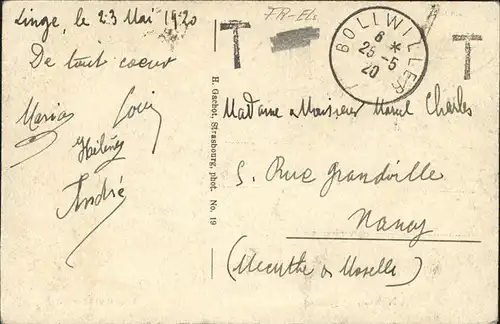 Linge, le 23 Mai 1920
De tout coeur
Maria
Louis
André
H. Gachot, Strasbourg, phot. No. 19
T
FR-Els
BOLLWILLER
6 *
25-5
20
T
Madame & Monsieur Marcel Charles
5, Rue Grandville
Nancy
(Meurthe & Moselle)